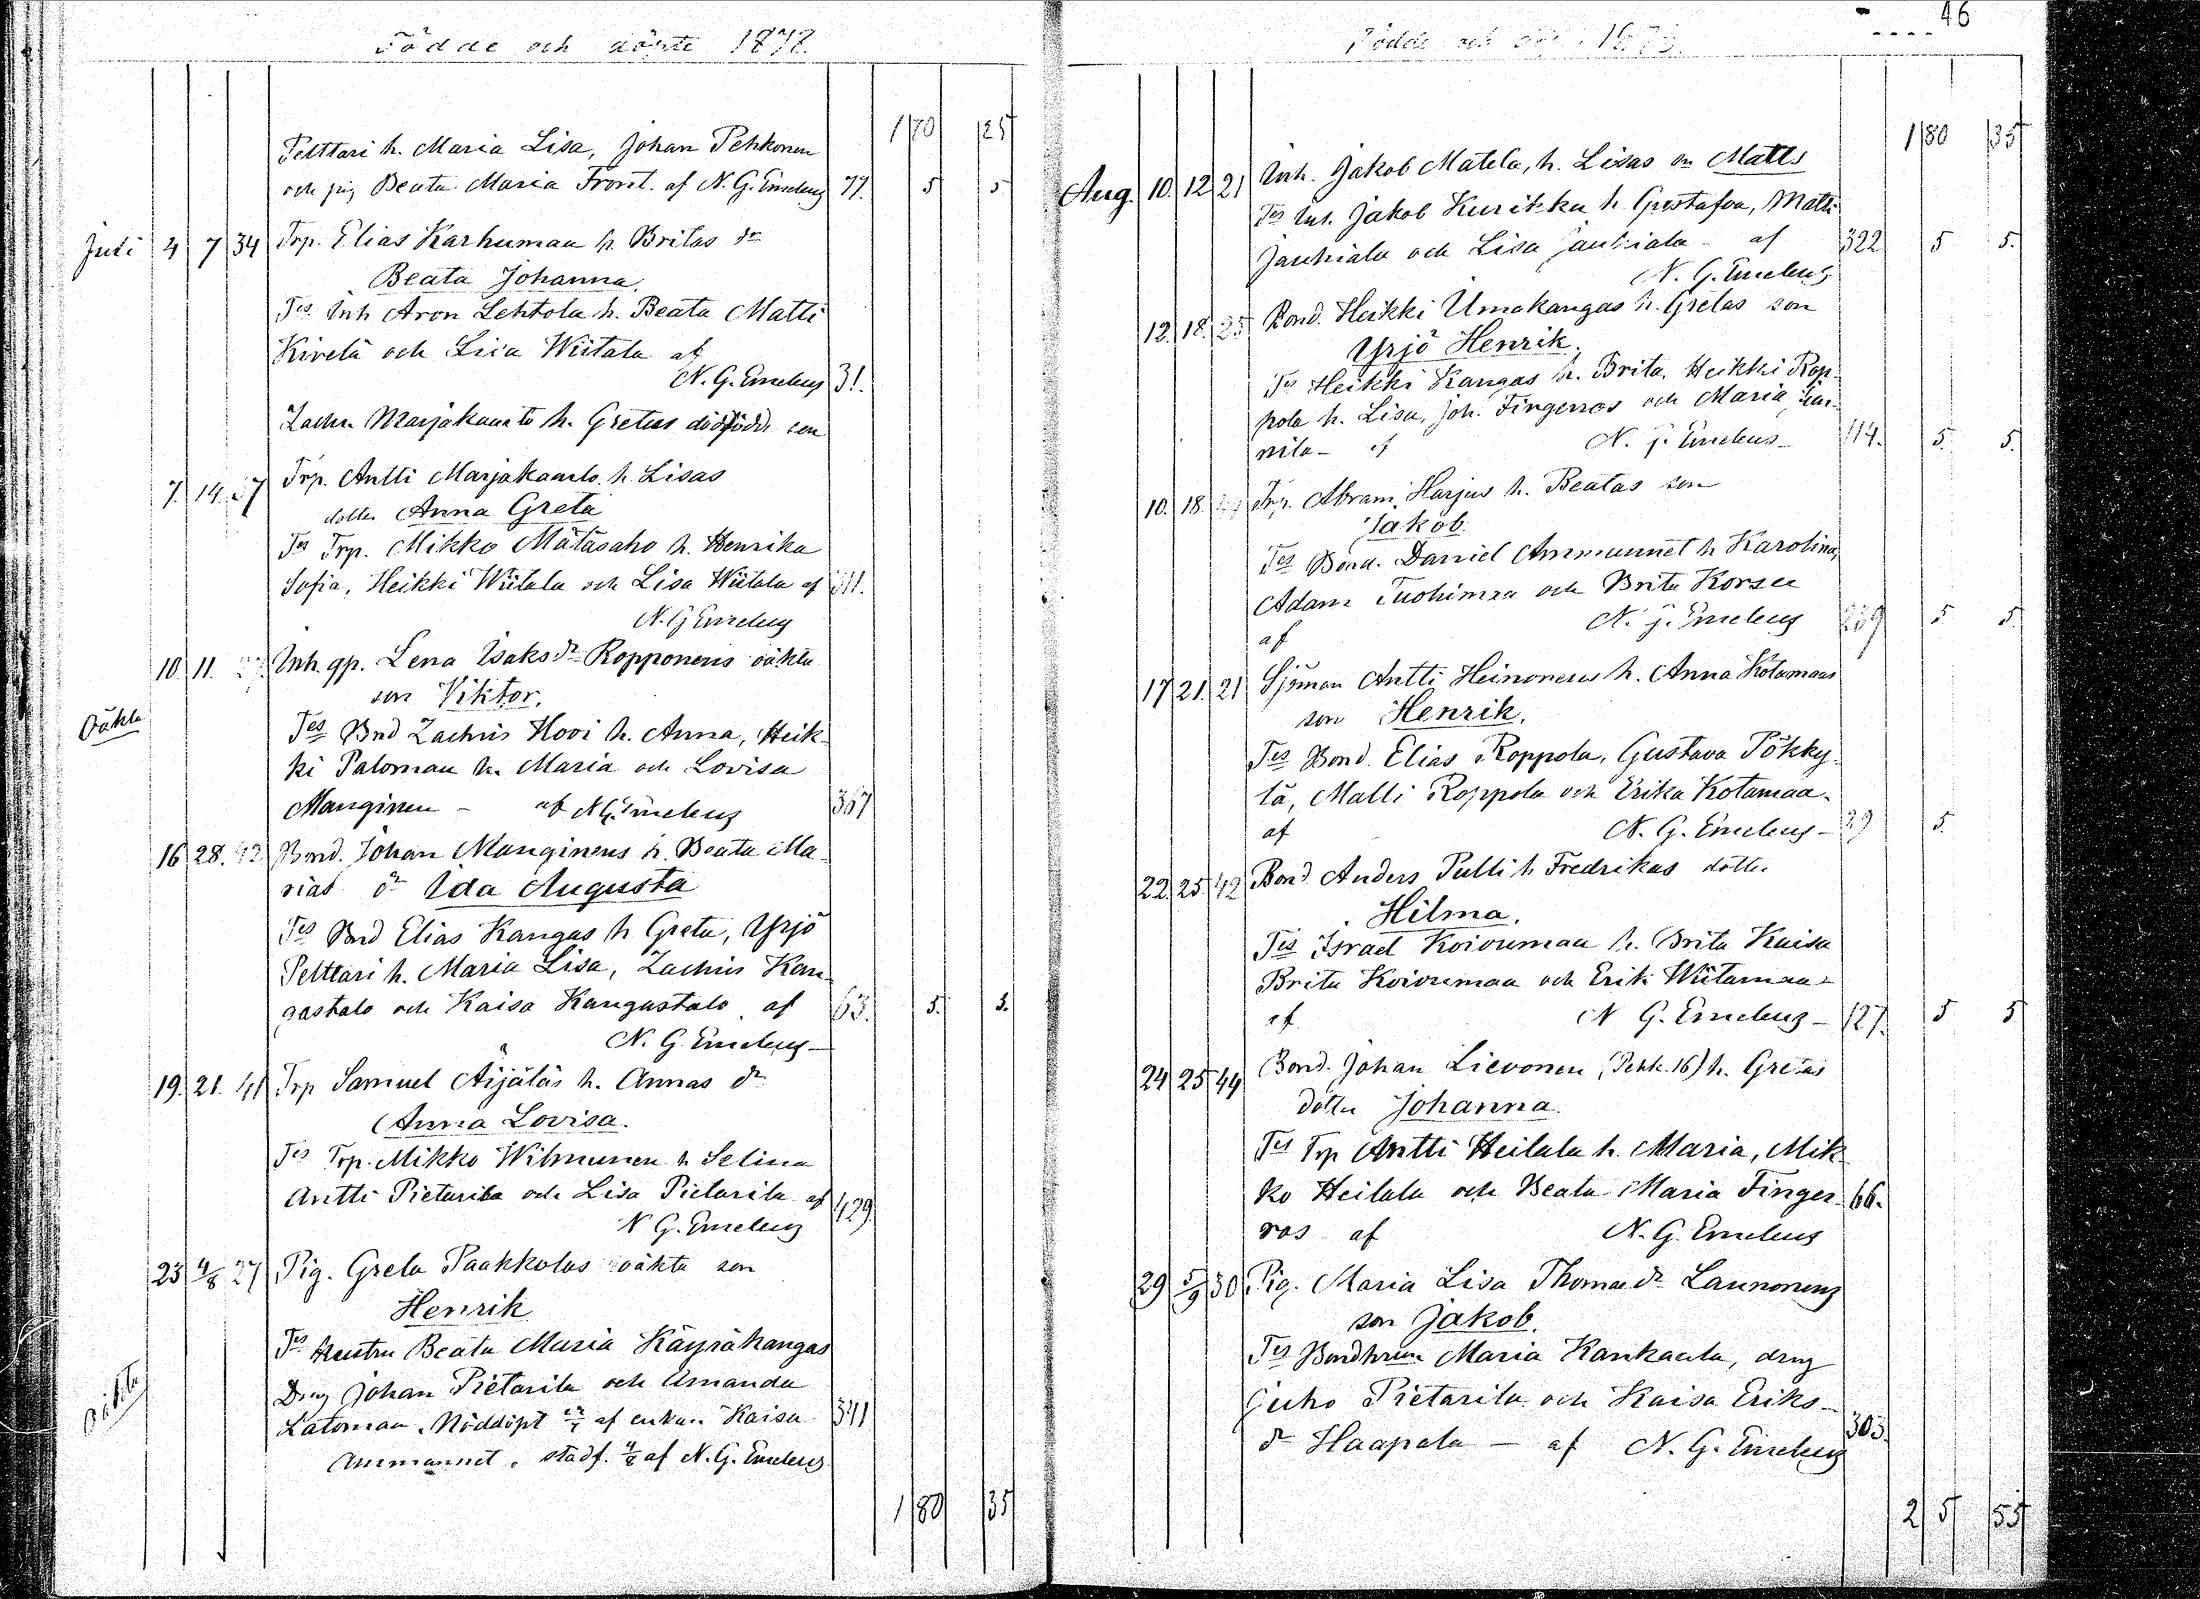 Födde och döpte 1878.
1 70 25
Pelttari h. Maria Lisa, Johan Pehkonen
och pig Beata Maria Front. af N. G. Emeleus 77. 5 5
Juli 4 7 34 Trp. Elias Karhumaa h. Britas dr
Beata Johanna.
Tes Inh Aron Lehtola h. Beata Matti
Kivelä och Lisa Wiitala af
N. G. Emeleus 31.
Zachr. Marjakaarto h. Gretas dödfödde son
7. 14. 37 Trp. Antti Marjakaarto h. Lisas
dotter Anna Greta
Tes Trp. Mikko Mätäsaho h. Henrika
Sofia, Heikki Wiitala och Lisa Wiitala af 311.
N. G Emeleus
10. 11. Inh. gp. Lena Isaksdr Ropponens oäkta
son Viktor.
Oäkta
Tes Bnd Zachris Hovi h. Anna, Heik-
ki Palomaa h. Maria och Lovisa
Manginen - af N. G. Emeleus 367
16 28. 42 Bond. Johan Manginens h. Beata Ma-
rias dr Ida Augusta
Tes Bnd Elias Kangas h Greta, Yrjö
Pelttari h. Maria Lisa, Zachris Kan-
gastalo och Kaisa Kangastalo af 63. 5. 5.
N. G. Emeleus -
19. 21. 41 Trp Samuel Äijäläs h. Annas dr
Anna Lovisa.
Tes Trp. Mikko Wilmunen h Selina
Antti Pietarila och Lisa Pietarila af 429
N G. Emeleus
23 4/8 27 Pig. Greta Paakkolas oäkta son
Henrik
Tes hustru Beata Maria Käyräkangas
Dreng Johan Pietarila och Amanda
Oäkta
Latomaa. Nöddöpt af enkan Kaisa 341
Ammunnet, stadf. 4/8 af N. G. Emeleus
1 80 35
46
Födde och döpte 1878.
1 80 35
Aug. 10. 12 21 Inh. Jakob Matela, h. Lisas son Matts
Tes Inh. Jakob Kurikka h. Gustafva, Matti
Jauhiala och Lisa Jauhiala - af 322 5 5.
N. G. Emeleus
12. 18. 25 Bond. Heikki Umakangas h. Gretas son
Yrjö Henrik.
Tes Heikki Kangas h. Brita, Heikki Rop-
pola h. Lisa, Joh. Fingerroos och Maria
nila - af N. G. Emeleus - 114. 5. 5.
10. 18. Trp. Abram Harjus h. Beatas son
Jakob.
Tes Bond. Daniel Ammunnet h Karolina,
Adam Tuohimaa och Brita Korsee
af N. G. Emeleus 239 5 5.
17 21. 21 Sjöman Antti Heinonens h. Anna Kotamaas
son Henrik.
Tes Bond. Elias Roppola, Gustava Pökky-
lä, Matti Roppola och Erika Kotamaa-
af N. G. Emeleus - 29 5.
22. 25. 42 Bond Anders Pulli h Fredrikas dotter
Hilma.
Tes Israel Koivumaa h. Brita Kaisa
Brita Koivumaa och Erik Wiitamaa -
af N G. Emeleus - 127. 5 5
24 25 44 Bond. Johan Lievonen (Pehk. 16) h. Gretas
dotter Johanna.
Tes Trp Antti Heilala h. Maria, Mik-
ko Heilala och Beata Maria Finger- 66.
ros af N. G. Emeleus
29 5/9 30 Pig. Maria Lisa Thomaedr Launonens
son Jakob.
Tes Bondhrun Maria Kankaala, dreng
Juho Pietarila och Kaisa Eriks-
dr Haapala - af N. G. Emeleus 303.
2 5 55